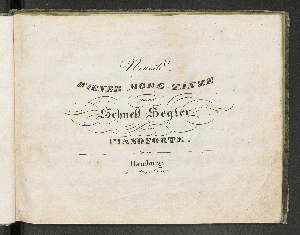 Neueste
WIENER MODE TÄNZE
Schnell Segler
PIANOFORTE.
Hamburg